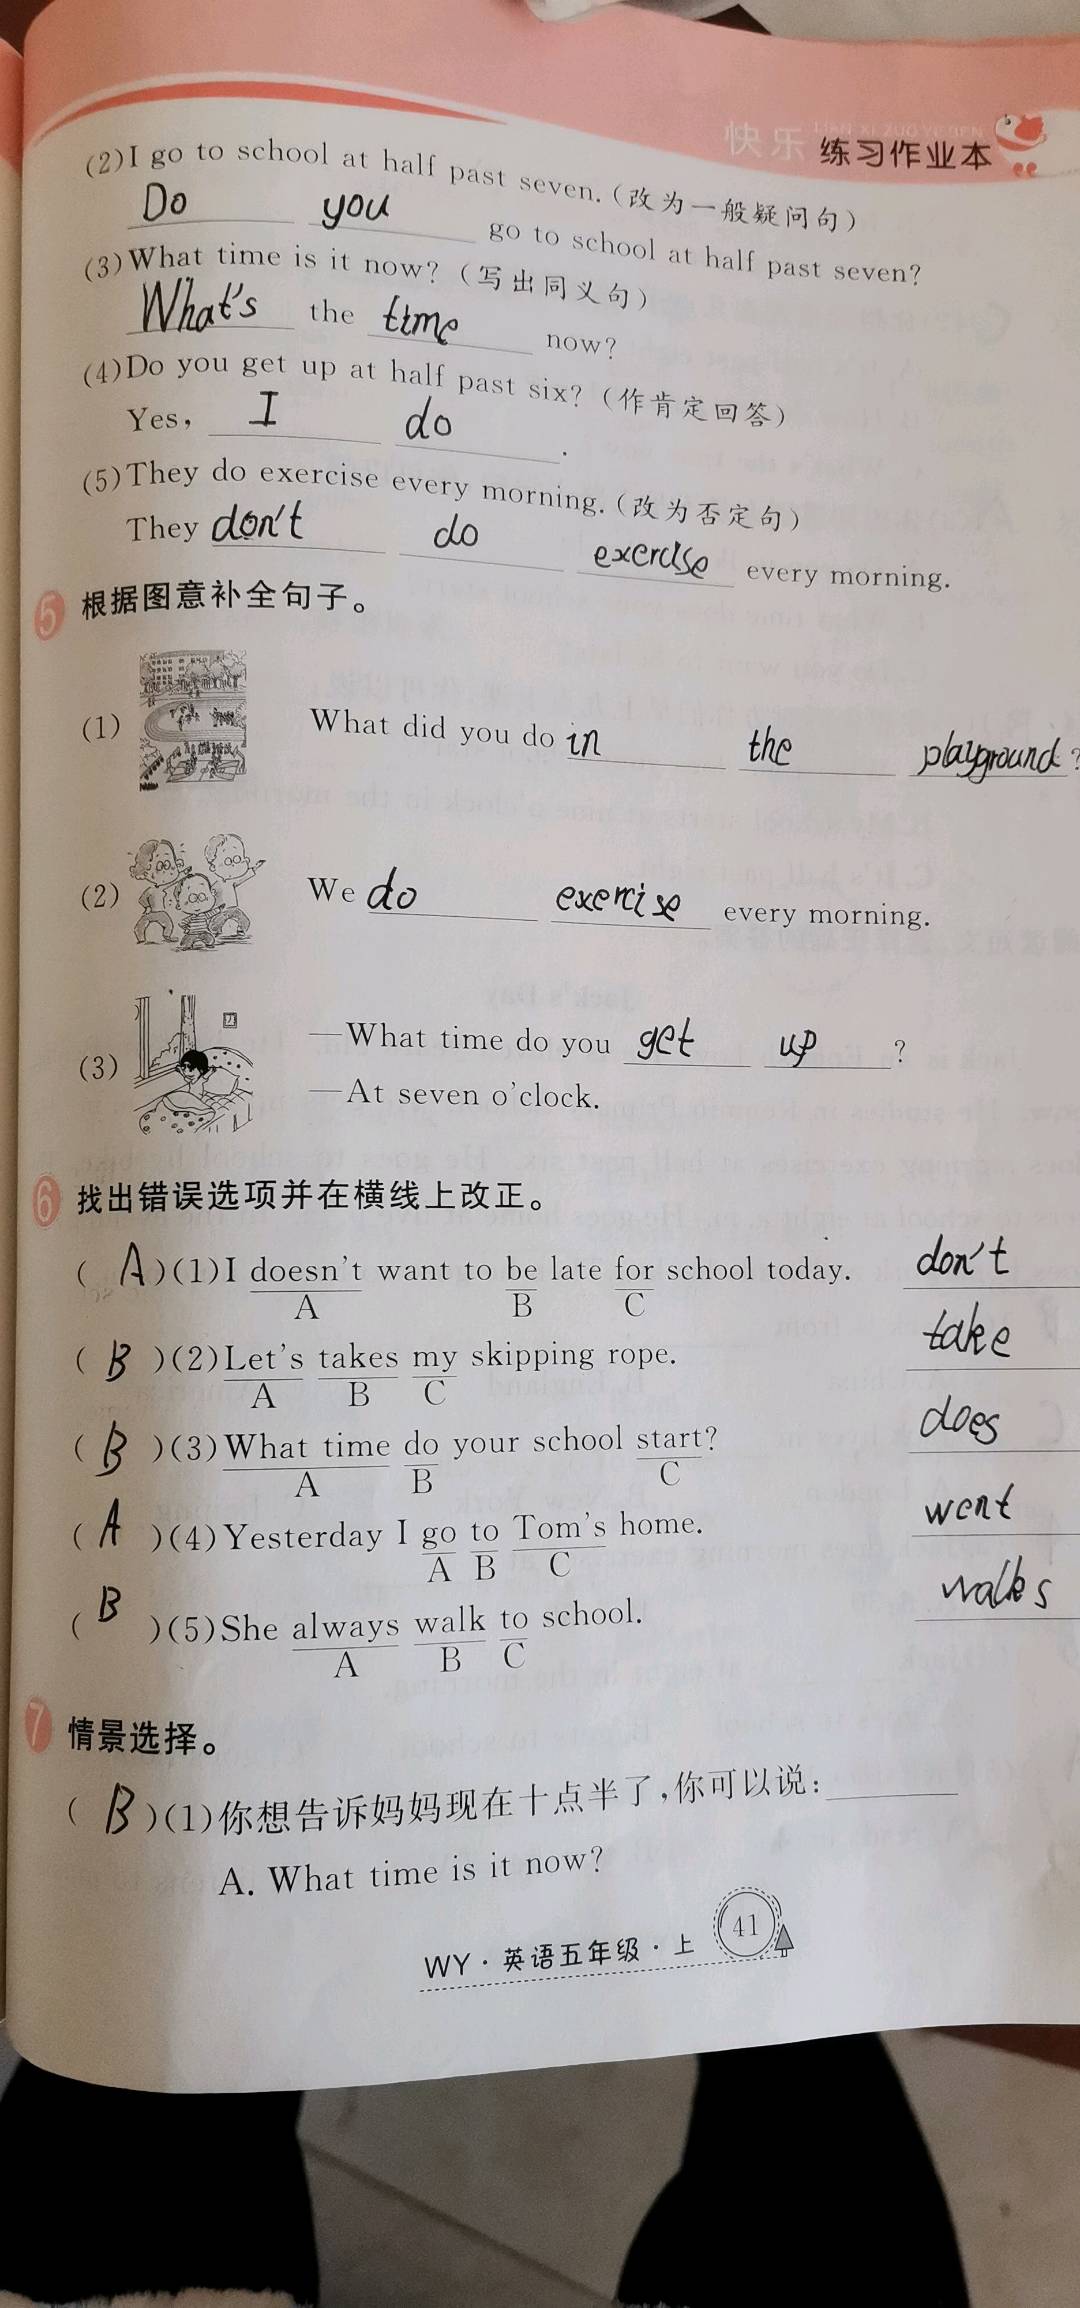 快乐 练习作业本
(2)I go to school at half past seven.(改为一般疑问句)
Do you go to school at half past seven?
(3)What time is it now?(写出同义句)
What's the time now?
(4)Do you get up at half past six?(作肯定回答)
Yes, I do.
(5)They do exercise every morning.(改为否定句)
They don't do exercise every morning.
5 根据图意补全句子。
(1) What did you do in the playground?
(2) We do exercise every morning.
(3) —What time do you get up?
—At seven o'clock.
6 找出错误选项并在横线上改正。
( A )(1)I doesn't want to be late for school today. don't
A B C
( B )(2)Let's takes my skipping rope. take
A B C
( B )(3)What time do your school start? does
A B C
( A )(4)Yesterday I go to Tom's home. went
A B C
( B )(5)She always walk to school. walks
A B C
7 情景选择。
( B )(1)你想告诉妈妈现在十点半了,你可以说:
A. What time is it now?
WY·英语五年级·上 41